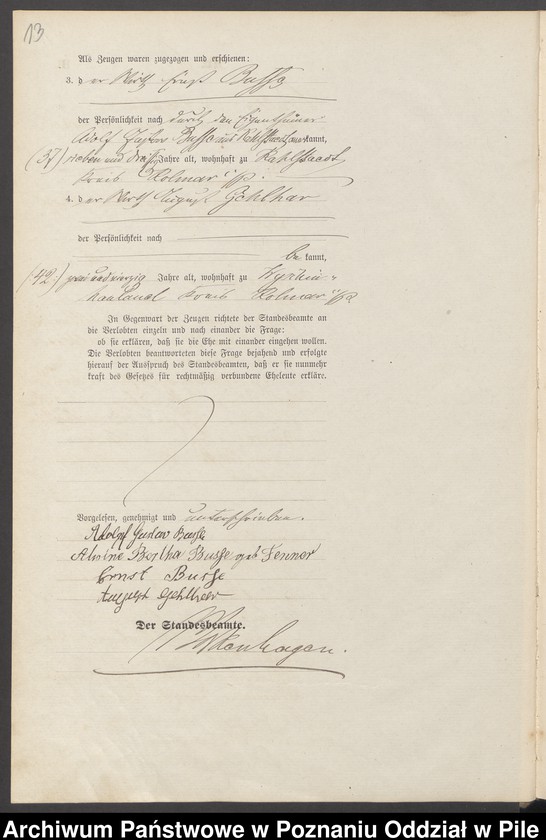 13
Als Zeugen waren zugezogen und erschienen:
3. der Wirth Ernst Busse
der Persönlichkeit nach durch den Eigenthümer
Adolf Gustav Busse aus kannt,
(37) sieben und dreißig Jahre alt, wohnhaft zu Kahlstaedt
Kreis Kolmar i/P.
4. der Wirth August Gehlhar
der Persönlichkeit nach
be kannt,
(42) zwei und vierzig Jahre alt, wohnhaft zu
Kreis Kolmar i/P
In Gegenwart der Zeugen richtete der Standesbeamte an
die Verlobten einzeln und nach einander die Frage:
ob sie erklären, daß sie die Ehe mit einander eingehen wollen.
Die Verlobten beantworteten diese Frage bejahend und erfolgte
hierauf der Ausspruch des Standesbeamten, daß er sie nunmehr
kraft des Gesetzes für rechtmäßig verbundene Eheleute erkläre.
Vorgelesen, genehmigt und unterschrieben.
Adolf Gustav Busse
Alwine Bertha Busse geb Fenner
Ernst Busse
August Gehlhar
Der Standesbeamte.
Archiwum Państwowe w Poznaniu Oddział w Pile